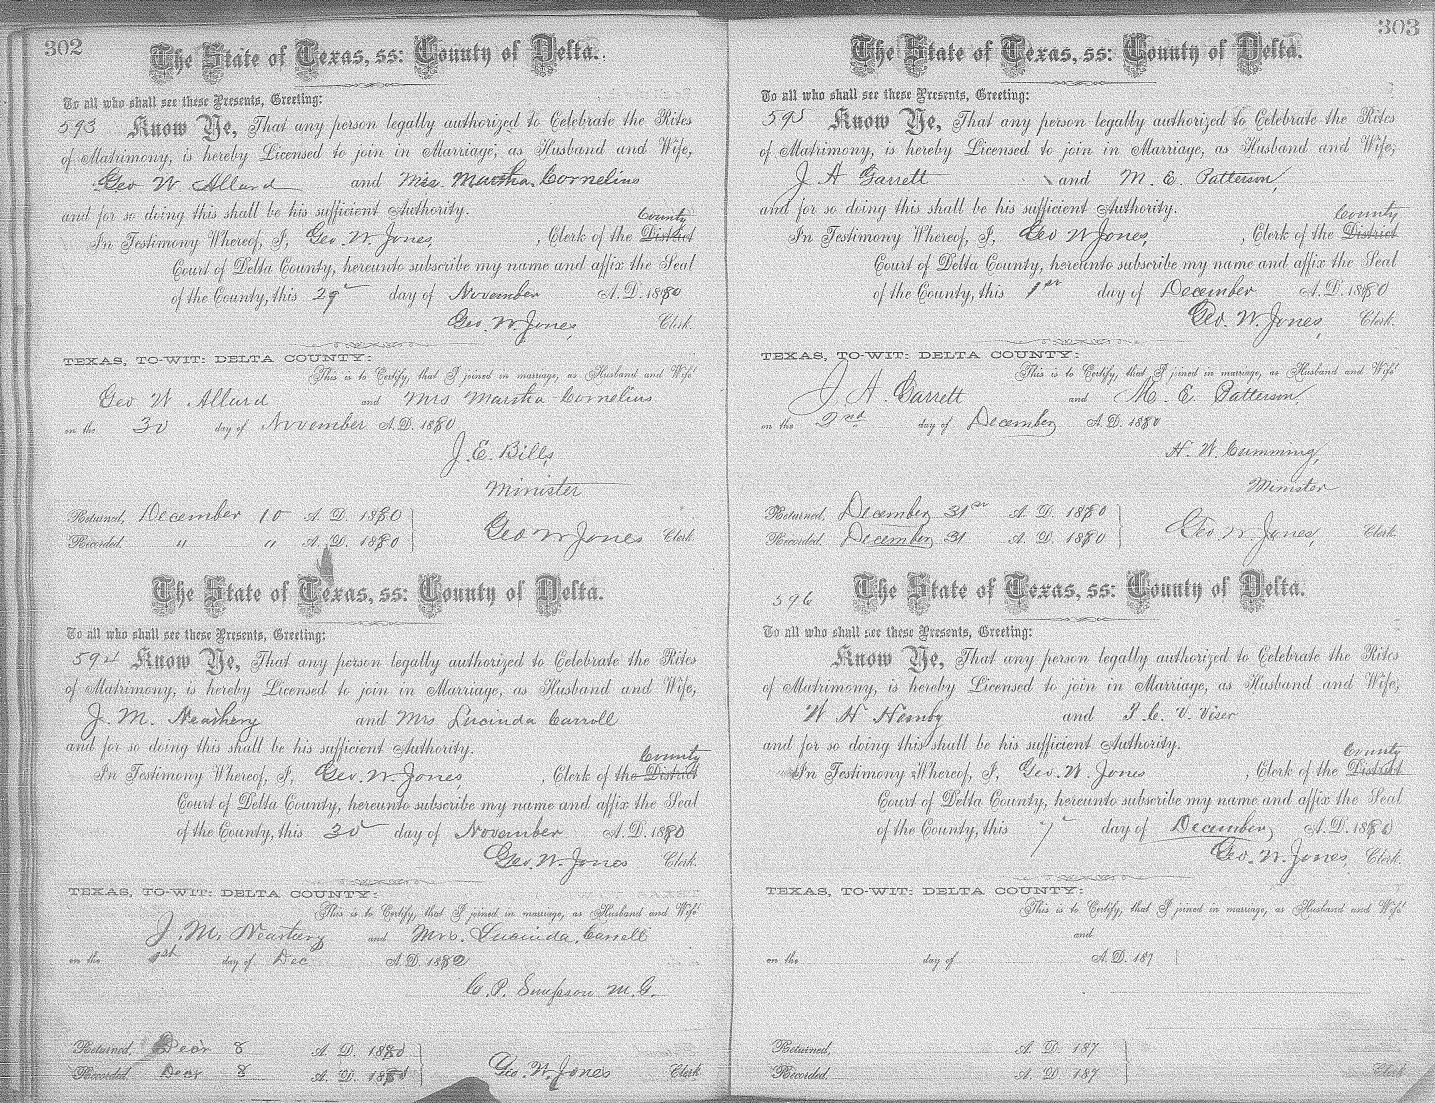 302
The State of Texas, ss: County of Delta.
To all who shall see these Presents, Greeting:
593 Know Ye, That any person legally authorized to Celebrate the Rites
of Matrimony, is hereby Licensed to join in Marriage, as Husband and Wife,
Geo W Allard and Mrs. Martha Cornelius
and for so doing this shall be his sufficient Authority.
County
In Testimony Whereof, I, Geo. W. Jones, , Clerk of the District
Court of Delta County, hereunto subscribe my name and affix the Seal
of the County, this 29 day of November A.D. 1880
Geo. W. Jones, Clerk.
TEXAS, TO-WIT: DELTA COUNTY:
This is to Certify, that I joined in marriage, as Husband and Wife
Geo W Allard and Mrs Martha Cornelius
on the 30 day of November A.D. 1880
J. E. Bills,
Minister
Returned, December 10 A. D. 1880
Recorded. " " A. D. 1880 Geo W Jones Clerk
The State of Texas, ss: County of Delta.
To all who shall see these Presents, Greeting:
594 Know Ye, That any person legally authorized to Celebrate the Rites
of Matrimony, is hereby Licensed to join in Marriage, as Husband and Wife,
J. M. and Mrs Lucinda Carroll
and for so doing this shall be his sufficient Authority.
County
In Testimony Whereof, I, Geo. W. Jones, , Clerk of the District
Court of Delta County, hereunto subscribe my name and affix the Seal
of the County, this 30 day of November A.D. 1880
Geo. W. Jones Clerk.
TEXAS, TO-WIT: DELTA COUNTY:
This is to Certify, that I joined in marriage, as Husband and Wife
J. M. and Mrs. Lucinda Carroll
on the day of Dec A.D. 1880
C. P. Simpson M. G.
Returned, Decr 8 A. D. 1880
Recorded. Decr 8 A. D. 1880 Geo. W. Jones Clerk
303
The State of Texas, ss: County of Delta.
To all who shall see these Presents, Greeting:
595 Know Ye, That any person legally authorized to Celebrate the Rites
of Matrimony, is hereby Licensed to join in Marriage, as Husband and Wife,
J A Garrett and M. E. Patterson,
and for so doing this shall be his sufficient Authority.
County
In Testimony Whereof, I, Geo W Jones, , Clerk of the District
Court of Delta County, hereunto subscribe my name and affix the Seal
of the County, this 1st day of December A.D. 1880
Geo. W. Jones, Clerk.
TEXAS, TO-WIT: DELTA COUNTY:
This is to Certify, that I joined in marriage, as Husband and Wife
J A. Garrett and M. E. Patterson
on the 2nd day of December A.D. 1880
H. W. Cumming,
Minister
Returned, December 31st A. D. 1880
Recorded. December 31 A. D. 1880 Geo W. Jones, Clerk
596 The State of Texas, ss: County of Delta.
To all who shall see these Presents, Greeting:
Know Ye, That any person legally authorized to Celebrate the Rites
of Matrimony, is hereby Licensed to join in Marriage, as Husband and Wife,
W H and V. Viser
and for so doing this shall be his sufficient Authority.
County
In Testimony Whereof, I, Geo. W. Jones , Clerk of the District
Court of Delta County, hereunto subscribe my name and affix the Seal
of the County, this 7 day of December, A.D. 1880
Geo. W. Jones, Clerk.
TEXAS, TO-WIT: DELTA COUNTY:
This is to Certify, that I joined in marriage, as Husband and Wife
and
on the day of A.D. 187
Returned, A. D. 187
Recorded. A. D. 187 Clerk